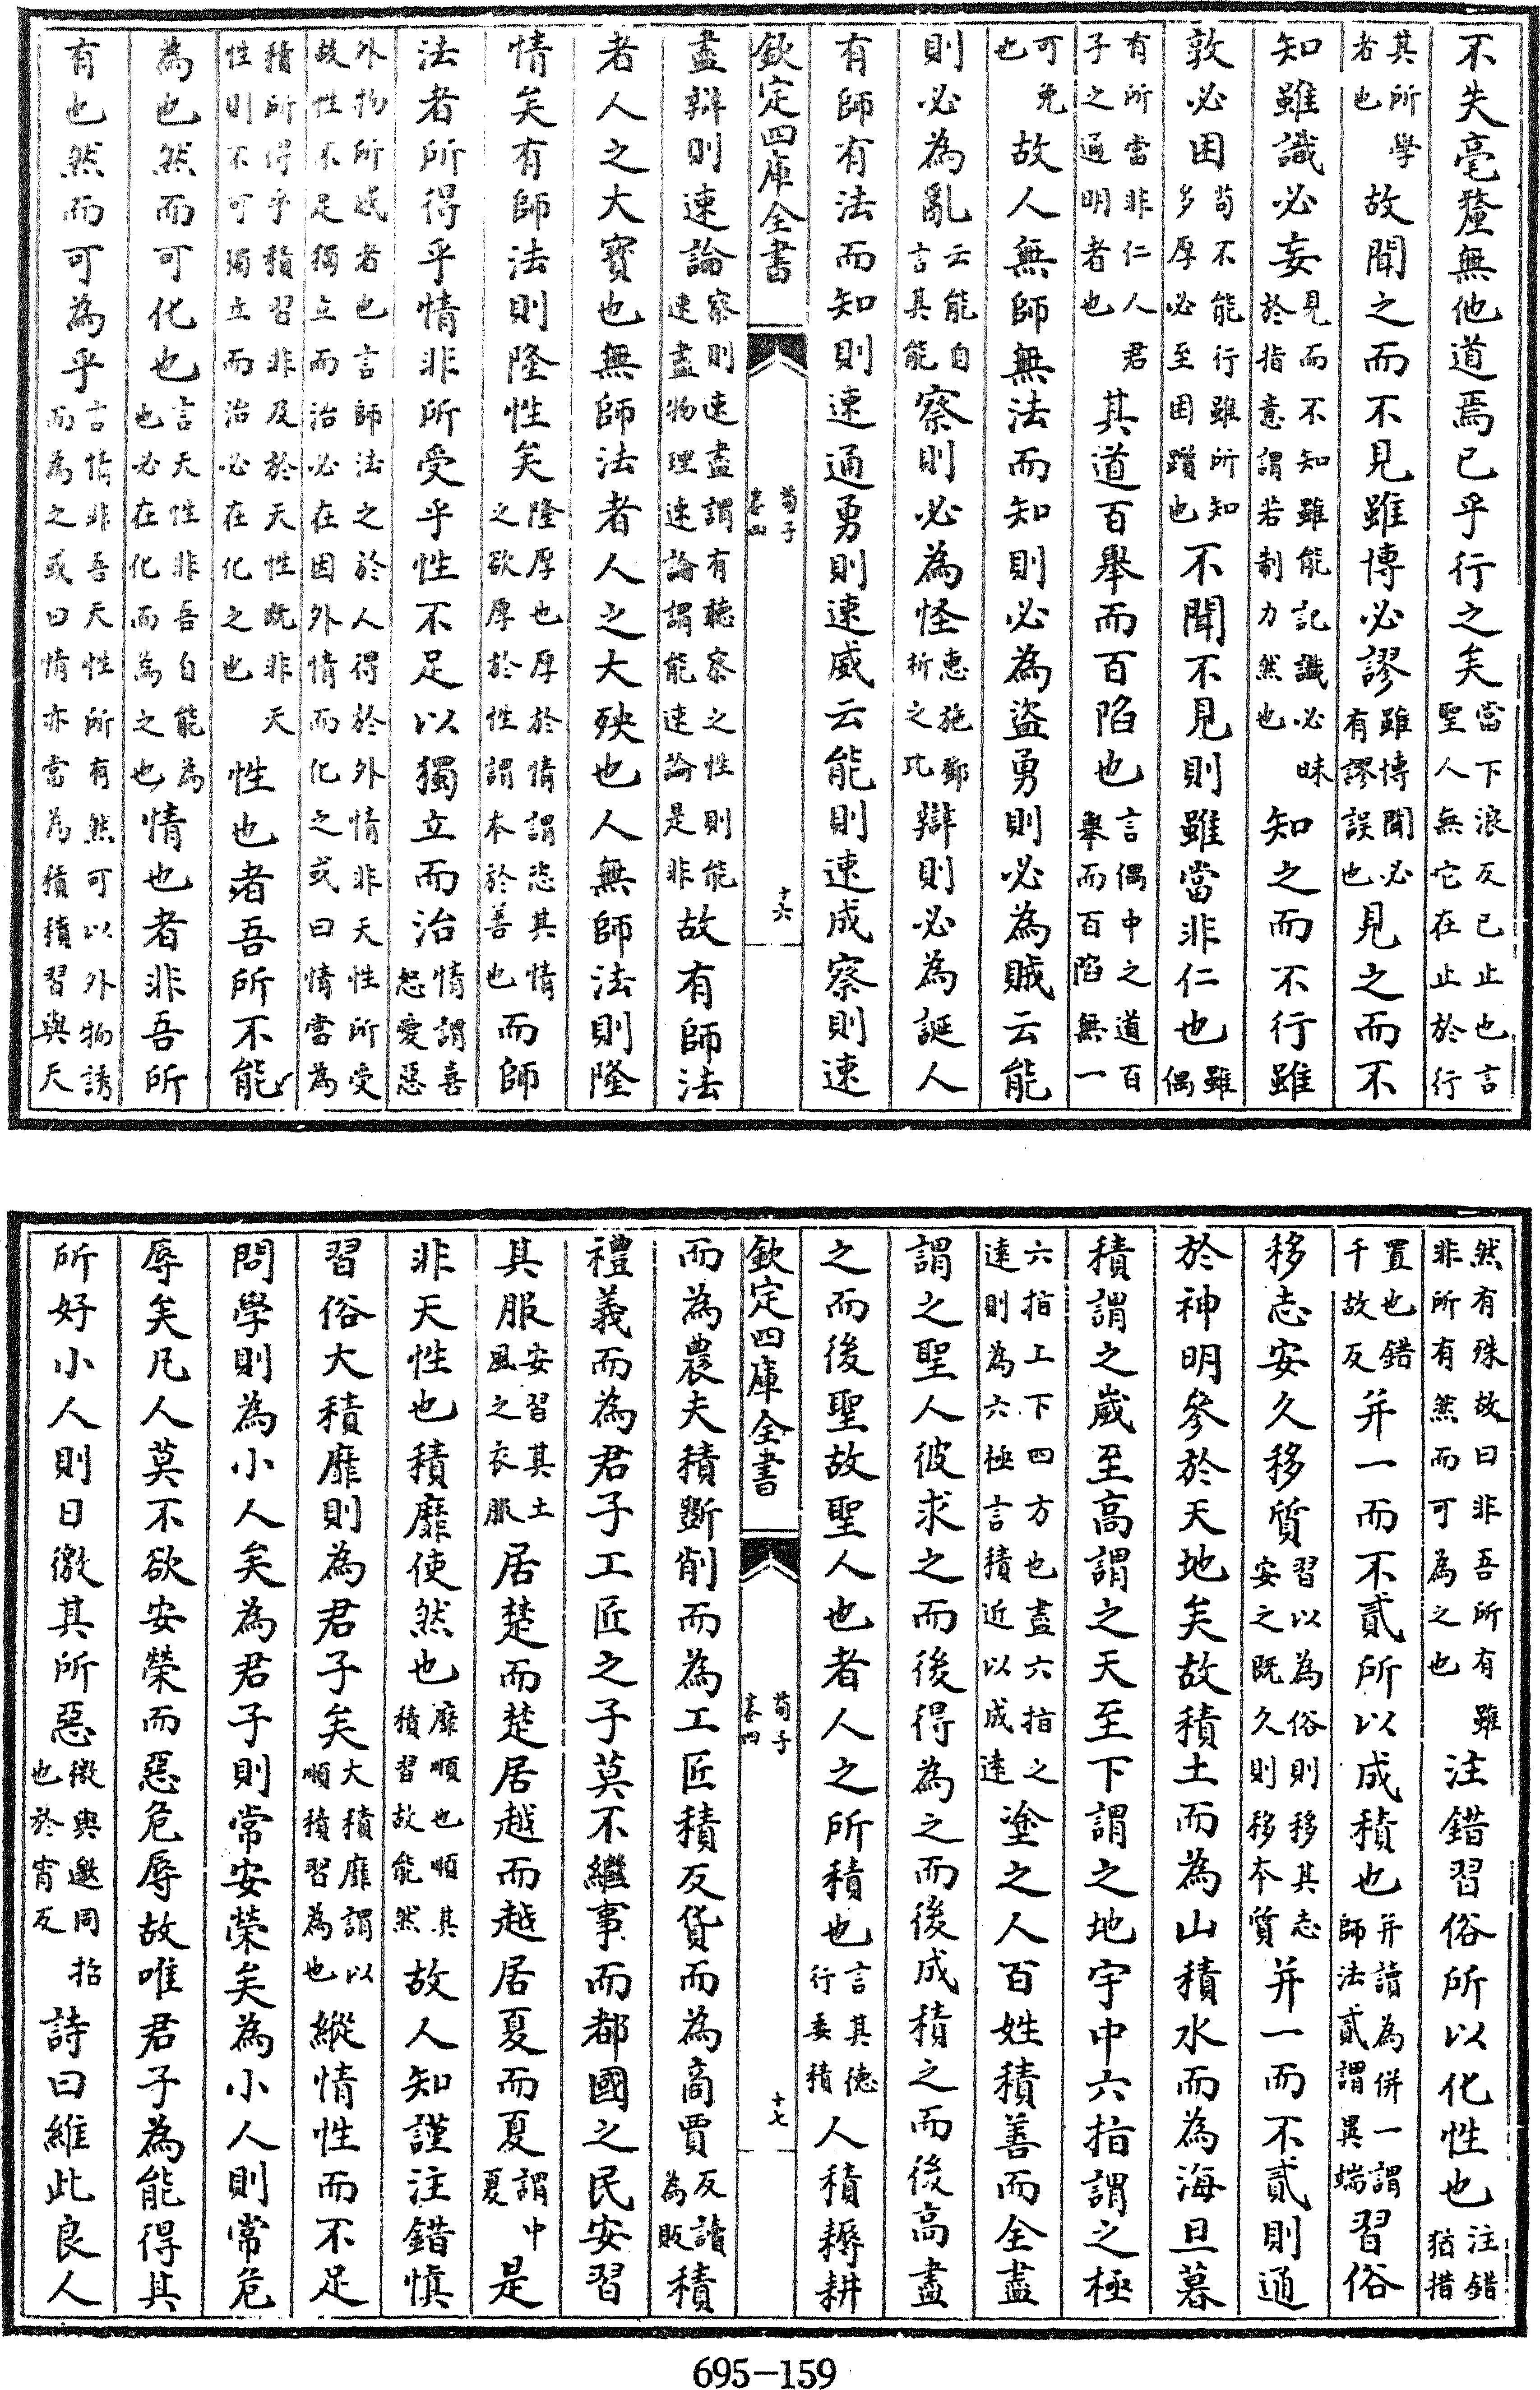 不失毫釐無他道焉已乎行之矣當下浪反已止也言聖人無它在止於行
其所學者也故聞之而不見雖博必謬雖博聞必有謬誤也見之而不
知雖識必妄見而不知雖能記識必昧於指意謂若制力然也知之而不行雖
敦必困苟不能行雖所知多厚必至困躓也不聞不見則雖當非仁也雖偶
有所當非仁人君子之通明者也其道百舉而百陷也言偶中之道百舉而百陷無一
可免也故人無師無法而知則必為盜勇則必為賊云能
則必為亂云能自言其能察則必為怪惠施鄧析之比辯則必為誕人
有師有法而知則速通勇則速威云能則速成察則速
欽定四庫全書 荀子卷四 十六
盡辯則速論察則速盡謂有聽察之性則能速盡物理速論謂能速論是非故有師法
者人之大寶也無師法者人之大殃也人無師法則隆
情矣有師法則隆性矣隆厚也厚於情謂恣其情之欲厚於性謂本於善也而師
法者所得乎情非所受乎性不足以獨立而治情謂喜怒愛惡
外物所感者也言師法之於人得於外情非天性所受故性不足獨立而治必在因外情而化之或曰情當為
積所得乎積習非及於天性既非天性則不可獨立而治必在化之也性也者吾所不能
為也然而可化也言天性非吾自能為也必在化而為之也情也者非吾所
有也然而可為乎言情非吾天性所有然可以外物誘而為之或曰情亦當為積積習與天
然有殊故曰非吾所有雖非所有然而可為之也注錯習俗所以化性也注錯猶措
置也錯千故反并一而不貳所以成積也并讀為併一謂師法貳謂異端習俗
移志安久移質習以為俗則移其志安之既久則移本質并一而不貳則通
於神明參於天地矣故積土而為山積水而為海旦暮
積謂之歲至高謂之天至下謂之地宇中六指謂之極
六指上下四方也盡六指之遠則為六極言積近以成遠塗之人百姓積善而全盡
謂之聖人彼求之而後得為之而後成積之而後高盡
之而後聖故聖人也者人之所積也言其德行委積人積耨耕
欽定四庫全書 荀子卷四 十七
而為農夫積斲削而為工匠積反貨而為商賈反讀為販積
禮義而為君子工匠之子莫不繼事而都國之民安習
其服安習其土風之衣服居楚而楚居越而越居夏而夏謂中夏是
非天性也積靡使然也靡順也順其積習故能然故人知謹注錯慎
習俗大積靡則為君子矣大積靡謂以順積習為也縱情性而不足
問學則為小人矣為君子則常安榮矣為小人則常危
辱矣凡人莫不欲安榮而惡危辱故唯君子為能得其
所好小人則日徼其所惡徼與邀同招也於宵反詩曰維此良人
695-159